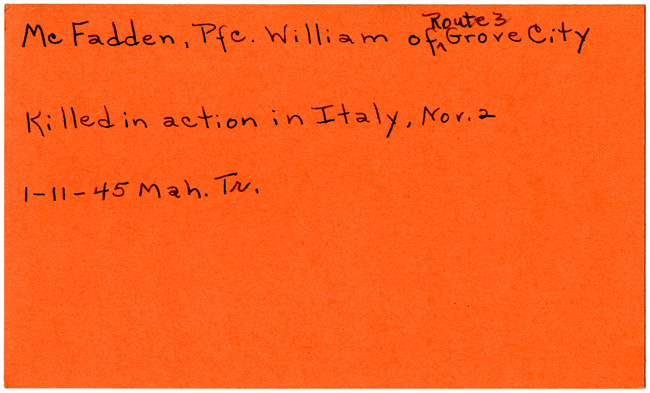 McFadden, Pfc. William of ^Route 3 Grove City
Killed in action in Italy, Nov. 2
1-11-45 Mah. Tr.